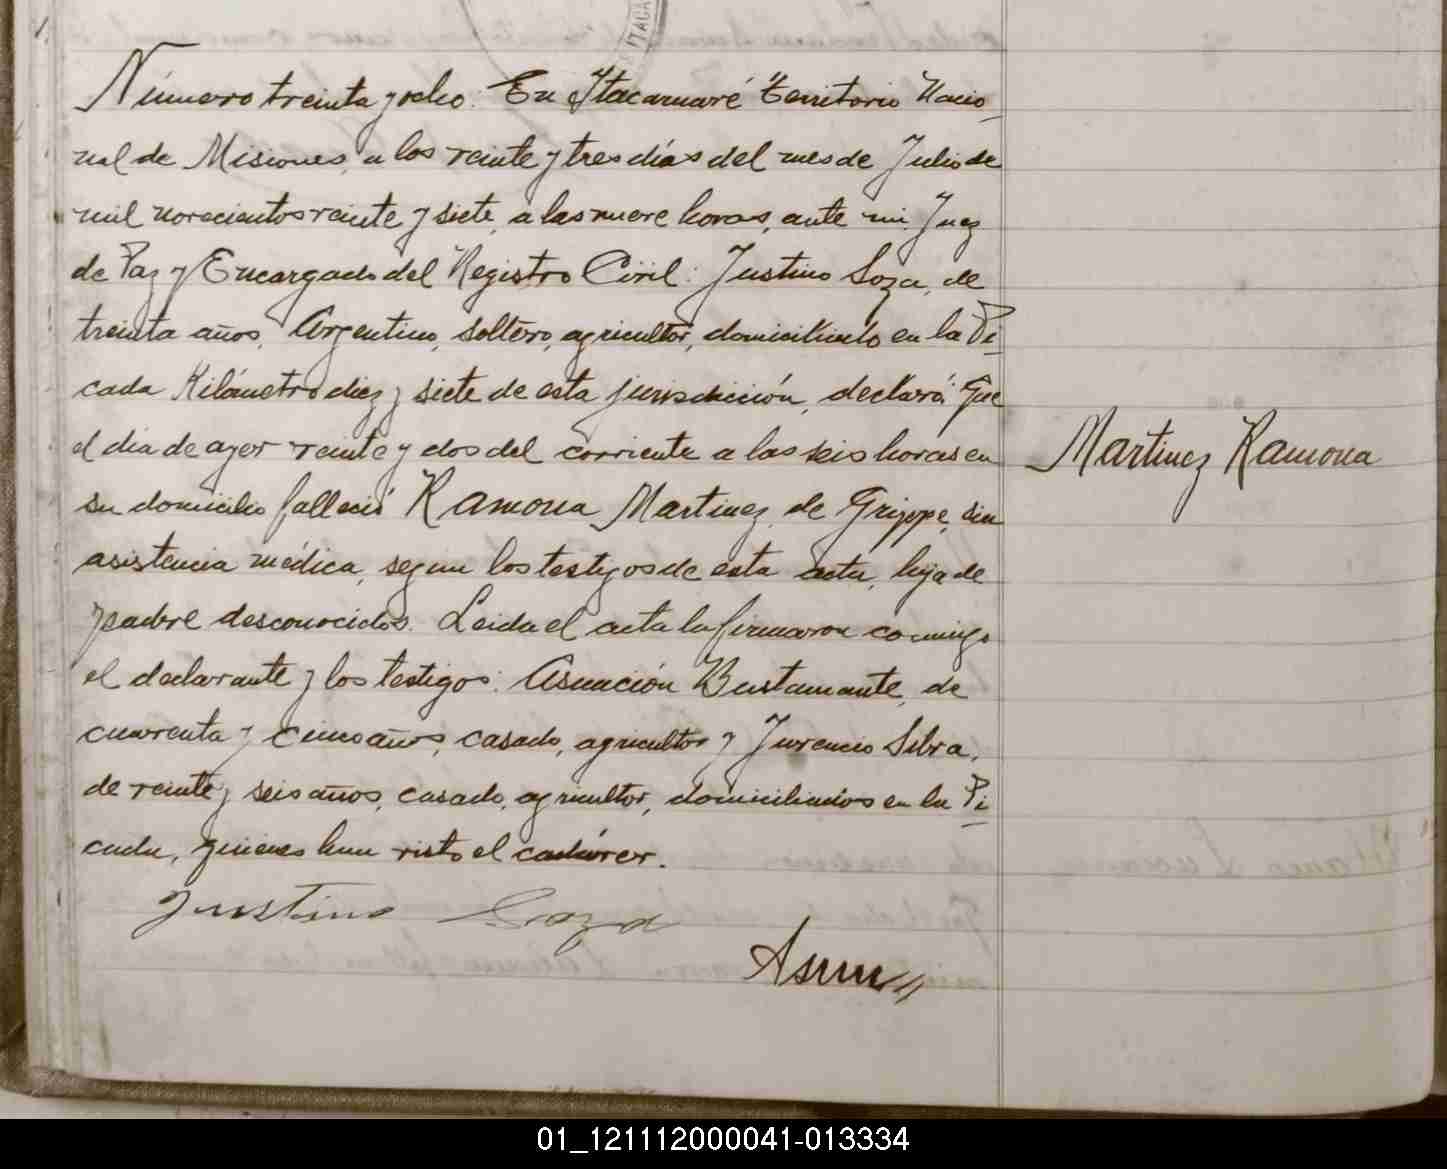 ITACA
Número treinta y ocho: En Itacaruaré Territorio Nacio
nal de Misiones, a los veinte y tres días del mes de Julio de
mil novecientos veinte y siete, a las nueve horas, ante mi Juez
de Paz y Encargado del Registro Civil: Justino Soza, de
treinta años, Argentino, soltero, agricultor, domiciliado en la Pi
cada Kilómetro diez y siete de esta jurisdicción, declaró: Que
el día de ayer veinte y dos del corriente a las seis horas en
Martinez Ramona
su domicilio falleció Ramona Martinez, de Grippe, sin
asistencia médica, segun los testigos de esta acta, hija de
padre desconocidos. Leida el acta la firmaron comigo
el declarante y los testigos: Asunción Bustamante, de
cuarenta y cinco años, casado, agricultor y Juvencio Silva,
de veinte y seis años, casado, agricultor, domiciliados en la Pi
cada, quienes han visto el cadáver.
Justino Soza
Asun
01_121112000041-013334